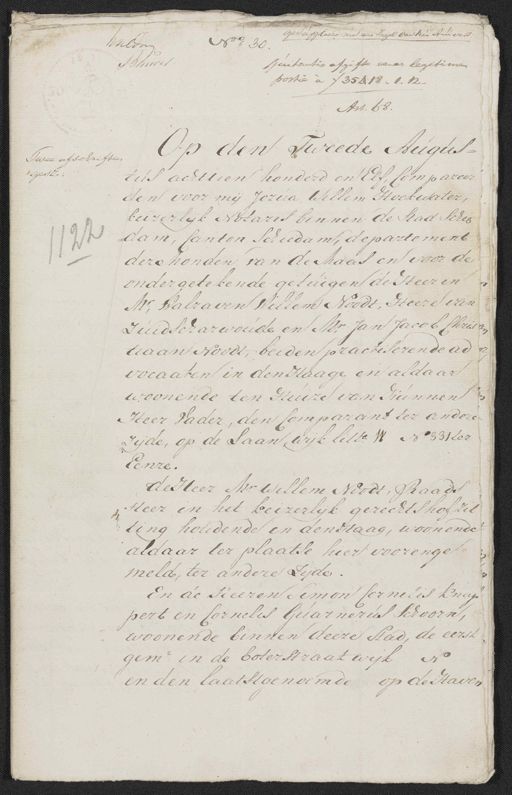 N° 30.
portie à ƒ 3518.1.12.
Art. 68.
1122
Op den Tweede Augus-
tus achttien honderd en Elf, Compareer
den voor mij Jozua Willem Hoekwater,
keizerlyk Notaris binnen de Stad Schie
dam, Canton Schiedam, departement
der monden van de Maas en voor de
ondergetekende getuigen de Heeren
Mr. Walraven Willem Noodt, Heer van
Zuidscharwoude en Mr. Jan Jacob Chris
tiaan Noodt, beiden practiserende ad
vocaaten in den Haage en aldaar
woonende ten Huize van Hunnen
Heer Vader, den Comparant ter andere
Zyde, op de Laan, wyk letter W N° 331 ter
Eenre.
de Heer Mr. Willem Noodt, Raads
Heer in het keizerlyk gerechtshof zit
ting houdende in den Haag, woonende
aldaar ter plaatse hier vooren ge-
meld, ter andere Zyde.
En de Heeren Simon Cornelis Knap
pert en Cornelis Guarnerus Hoorn,
woonende binnen deeze Stad, de eerst
gem. in de Boterstraat wyk N°
en den laatstgenoemde op de Haven